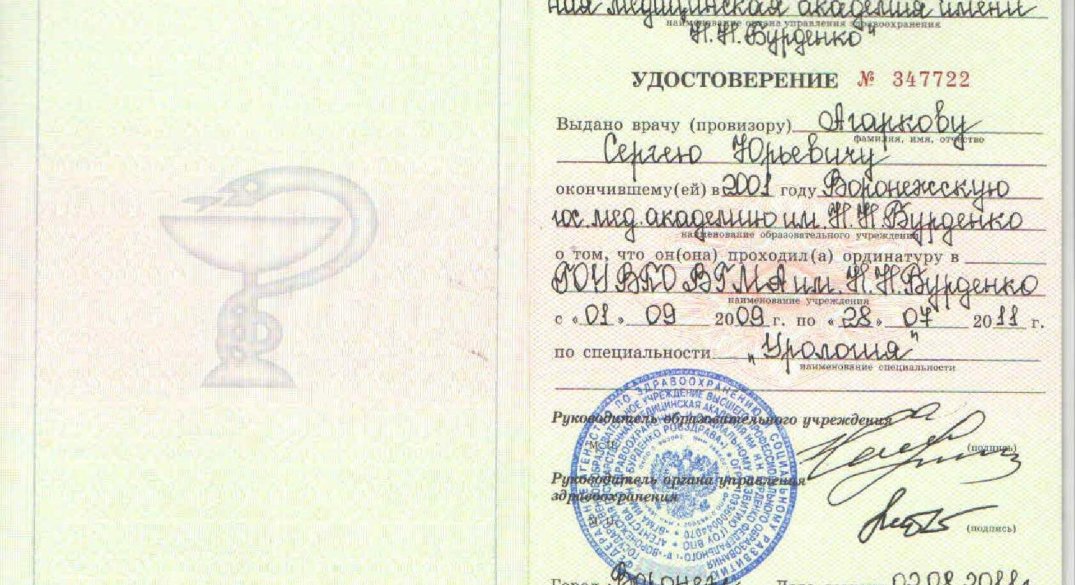 ная медицинская академия имени
наименование органа управления здравоохранения
Н.Н.Бурденко"
УДОСТОВЕРЕНИЕ № 347722
Выдано врачу (провизору) Агаркову
фамилия, имя, отчество
Сергею Юрьевичу
окончившему(ей) в 2001 году Воронежскую
гос. мед. академию им. Н.Н.Бурденко
наименование образовательного учреждения
о том, что он(она) проходил(а) ординатуру в
ГОУ ВПО ВГМА им. Н.Н.Бурденко
наименование учреждения
с «01» 09 2009 г. по «28» 07 2011 г.
по специальности „Урология"
наименование специальности
Руководитель образовательного учреждения
(подпись)
Руководитель органа управления
здравоохранения
(подпись)
Город Воронеж 02.08.2011г